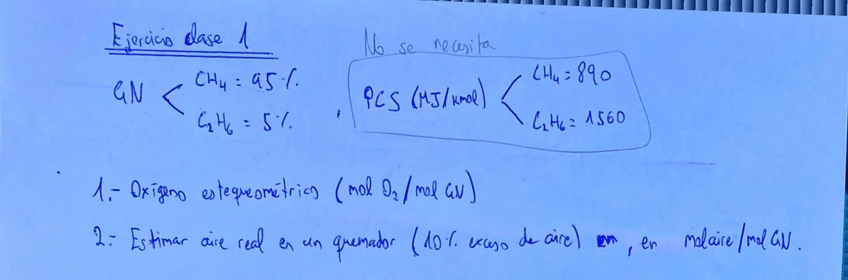 Ejercicio clase 1
No se necesita
GN < CH4 = 95%. , PCS (MJ/kmol) < CH4 = 890
C2H6 = 5%. C2H6 = 1560
1.- Oxígeno estequeométrico (mol O2/mol GN)
2.- Estimar aire real en un quemador (10% exceso de aire) en, en mol aire/mol GN.